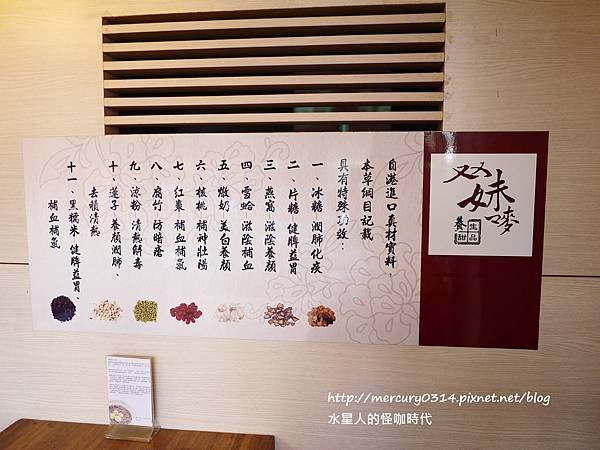 双妹嘜
養生甜品
自港進口真材實料，
本草綱目記載
具有特殊功效：
一、冰糖 潤肺化痰
二、片糖 健脾益胃
三、燕窩 滋陰養顏
四、雪蛤 滋陰補血
五、燉奶 美白養顏
六、核桃 補神壯陽
七、紅棗 補血補氣
八、腐竹 防暗瘡
九、涼粉 清熱解毒
十、蓮子 養顏潤肺、
去積清熱
十一、黑糯米 健脾益胃、
補血補氣
http://mercury0314.pixnet.net/blog
水星人的怪咖時代